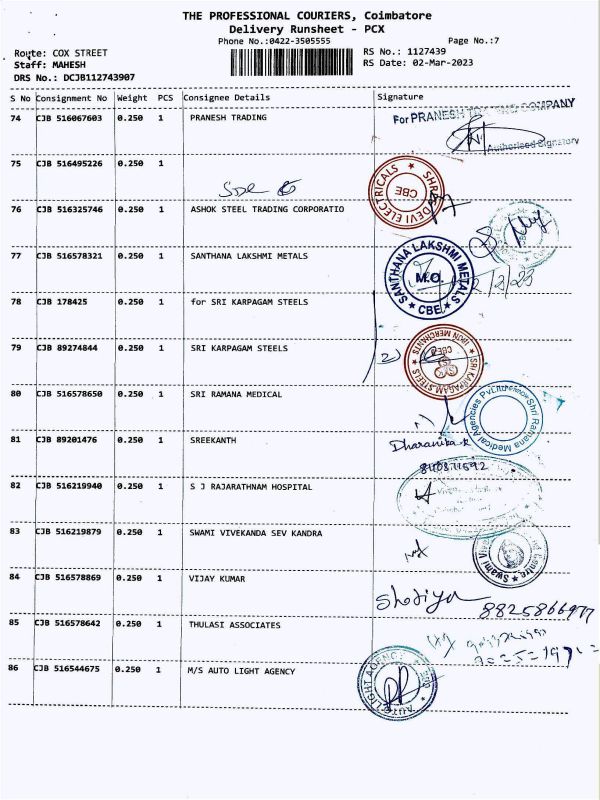 THE PROFESSIONAL COURIERS, Coimbatore
Delivery Runsheet - PCX
Phone No.:0422-3505555 Page No.:7
Route: COX STREET RS No.: 1127439
Staff: MAHESH RS Date: 02-Mar-2023
DRS No.: DCJB112743907
S No Consignment No Weight PCS Consignee Details Signature
74 CJB 516067603 0.250 1 PRANESH TRADING
For PRANESH TRADING COMPANY
Authorised Signatory
75 CJB 516495226 0.250 1
SHRI DEVI ELECTRICALS CBE
76 CJB 516325746 0.250 1 ASHOK STEEL TRADING CORPORATIO
77 CJB 516578321 0.250 1 SANTHANA LAKSHMI METALS
SANTHANA LAKSHMI METALS M.O. CBE
78 CJB 178425 0.250 1 for SRI KARPAGAM STEELS
79 CJB 89274844 0.250 1 SRI KARPAGAM STEELS
SRI KARPAGAM STEELS IRON MERCHANTS CBE
80 CJB 516578650 0.250 1 SRI RAMANA MEDICAL
Shri Ramana Medical Agencies Pvt Ltd
81 CJB 89201476 0.250 1 SREEKANTH
Dharanika.R
82 CJB 516219940 0.250 1 S J RAJARATHNAM HOSPITAL
83 CJB 516219879 0.250 1 SWAMI VIVEKANDA SEV KANDRA
84 CJB 516578869 0.250 1 VIJAY KUMAR
8825866977
85 CJB 516578642 0.250 1 THULASI ASSOCIATES
86 CJB 516544675 0.250 1 M/S AUTO LIGHT AGENCY
AUTO LIGHT AGENCY